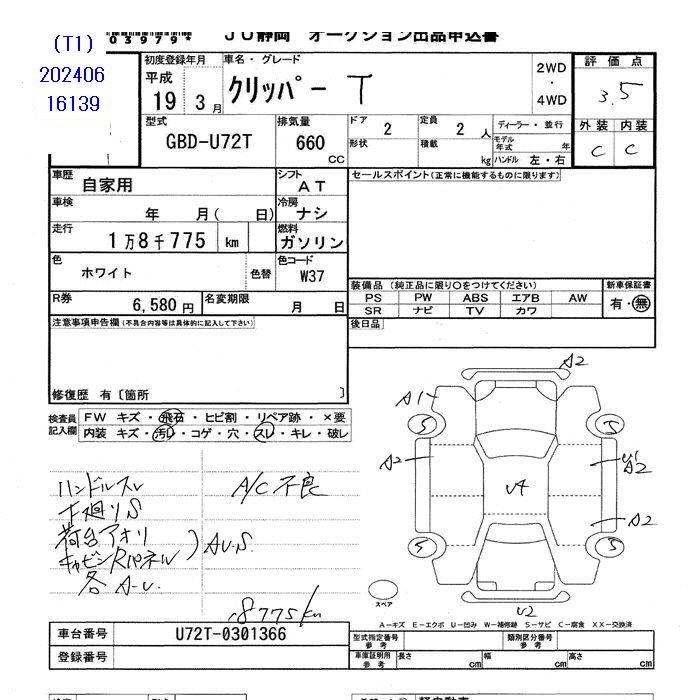 (T1)
202406
16139
03979*
JU静岡 オークション出品申込書
初度登録年月
平成
19 3月
車名・グレード
クリッパー T
2WD
・
4WD
評価点
3.5
外装 内装
C C
型式
GBD-U72T
排気量
660
CC
ドア 2
形状
定員 2人
積載 kg
ディーラー・並行
モデル年式 年
ハンドル 左・右
車歴
自家用
シフト
AT
セールスポイント(正常に機能するものに限ります)
車検
年 月( 日)
冷房
ナシ
走行
1万8千775 km
燃料
ガソリン
色
ホワイト
色替
色コード
W37
R券
6,580円
名変期限
月 日
装備品(純正品に限り○をつけてください)
PS PW ABS エアB AW
SR ナビ TV カワ
新車保証書
有・無
後日品
注意事項申告欄(不具合内容等は具体的に記入して下さい)
修復歴 有〔箇所 〕
検査員記入欄
FW キズ・飛石・ヒビ割・リペア跡・×要
内装 キズ・汚レ・コゲ・穴・スレ・キレ・破レ
ハンドルスレ
下廻りS
荷台アオリ
キャビンRパネル
)AU.S.
各A-U.
A/C不良
18775km
A2
A1
S
S
A2
U1
A2
U4
A2
S
S
U2
スペア
A-キズ E-エクボ U-凹み W-補修跡 S-サビ C-腐食 XX-交換済
車台番号
U72T-0301366
登録番号
型式指定番号
参考
類別区分番号
参考
車庫証明用
参考
長さ cm
幅 cm
高さ cm